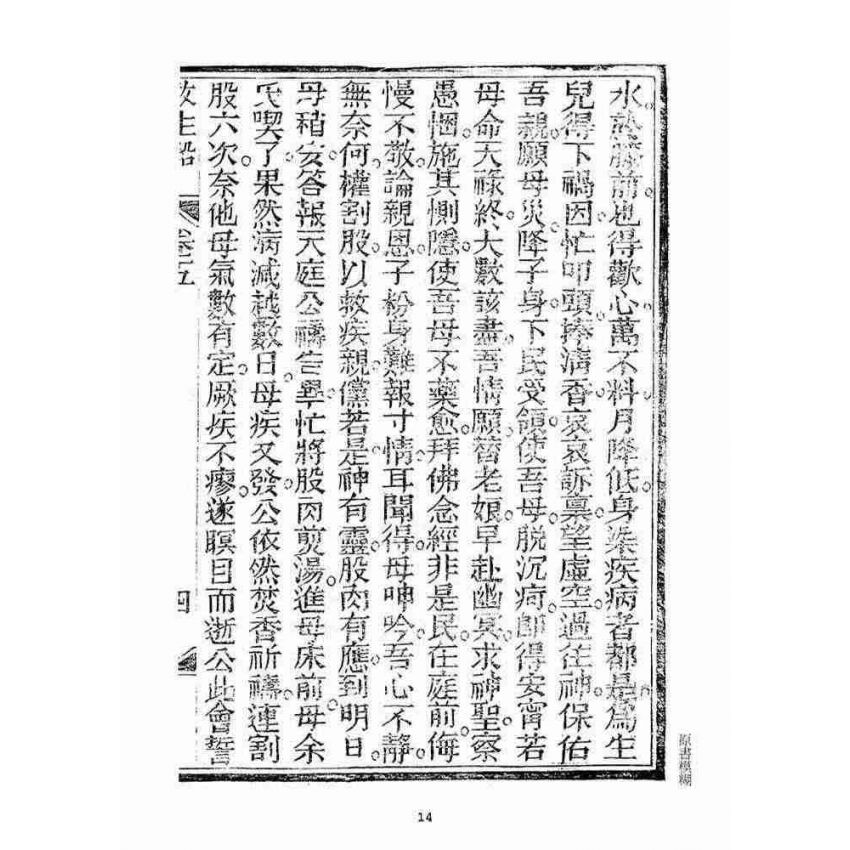 水熟籐前也得歡心萬不料月降低身染疾病者都是為生
兒得下禍因忙叩頭捧清香哀哀訴稟望虛空過往神保佑
吾親願母災降子身下民受領使吾母脫沉疴即得安寗若
母命天祿終大數該盡吾情願替老娘早赴幽冥求神聖察
愚悃施其惻隱使吾母不藥愈拜佛念經非是民在庭前侮
慢不敬論親恩子粉身難報寸情耳聞得母呻吟吾心不靜
無奈何權割股以救疾親儻若是神有靈股肉有應到明日
母稍安答報天庭公禱告畢忙將股肉煎湯進母床前母余
氏喫了果然病減越數日母疾又發公依然焚香祈禱連割
股六次奈他母氣數有定厥疾不瘳遂瞑目而逝公此會誓
生船
卷五
四
原書模糊
14